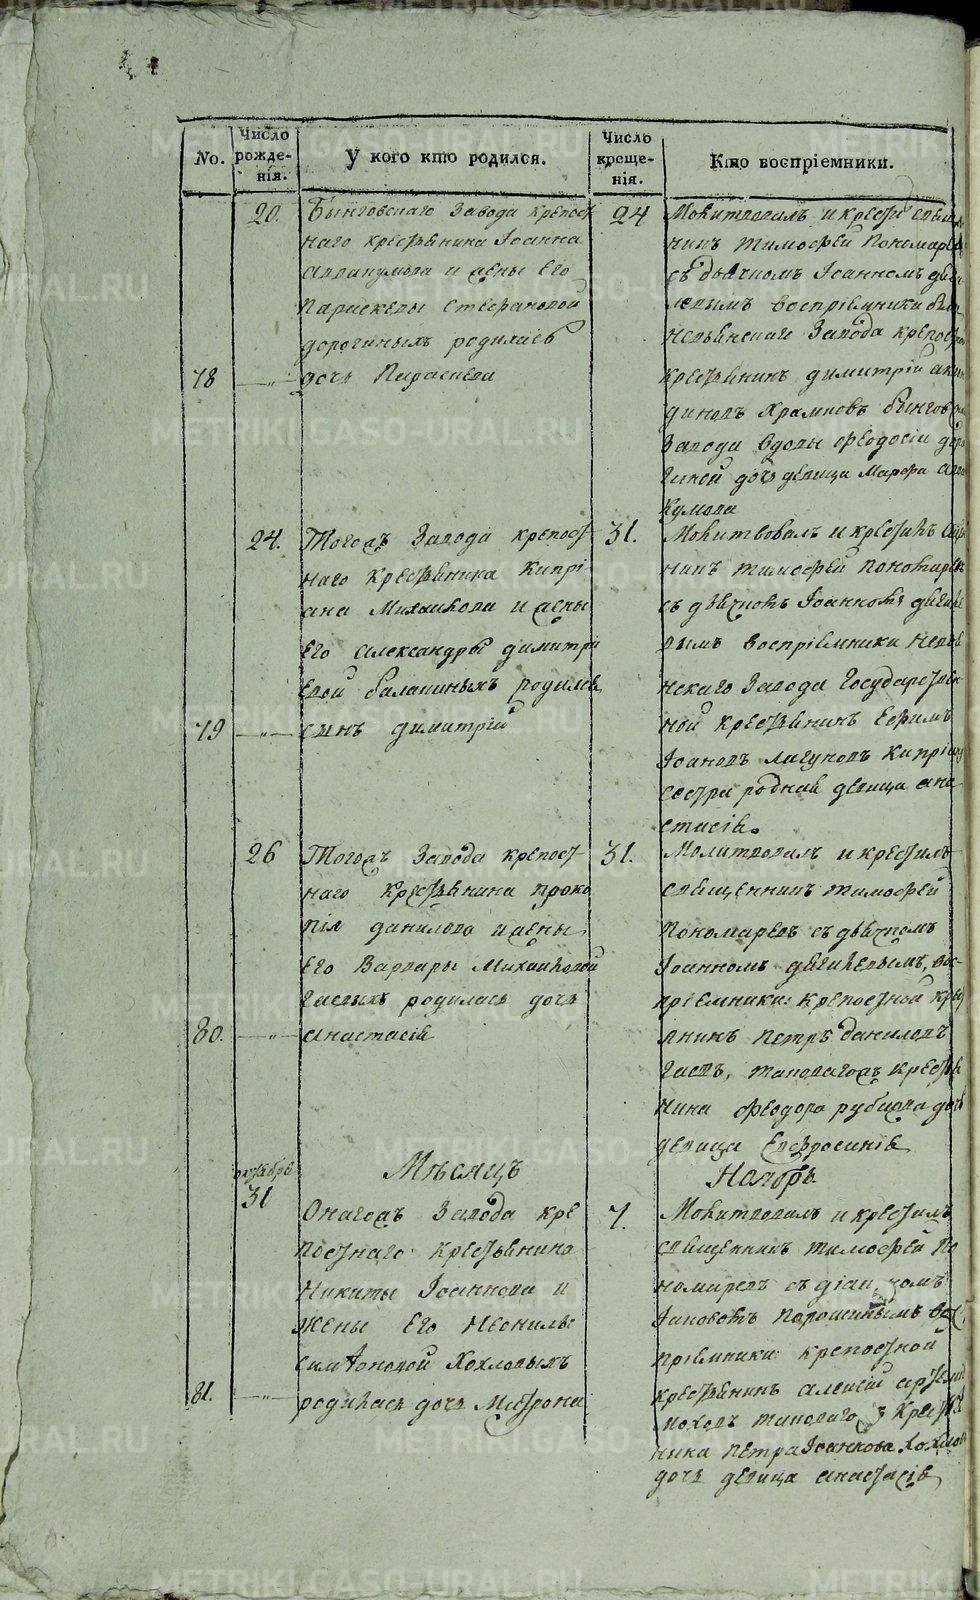 No.
Число рожде-нія.
У кого кто родился.
Число креще-нія.
Кто воспріемники.
20.
Бынговскаго Завода крепост
наго крестьянина Іоанна
Аввакумова и жены Его
Параскевы Стефановой
дорогиныхъ родилась
78 —„— дочь Параскева
24
Молитвовалъ и крестилъ Священ
никъ Тимофей Пономаревъ
съ дьячкомъ Іоанномъ
воспріемники были
Невьянскаго Завода крепостной
крестьянинъ Димитрій
Храмковъ Бынговскаго
Завода вдовы Феодосіи
дочь девица Марфа Авва
кумова
24.
Тогожъ Завода крепост
наго крестьянина Кипрі
ана Михайлова и жены
Его Александры Димитрі
евой Балакиныхъ родился
79 —„— сынъ Димитрій
31.
Молитвовалъ и крестилъ Свящ
никъ Тимофей Пономаревъ
съ дьячкомъ Іоанномъ
воспріемники Невья
нскаго Завода Государствен
ной крестьянинъ Ефимъ
Іоановъ Кипріану
сестра родная девица Ана
стасія.
26
Тогожъ Завода крепост
наго крестьянина Проко
пія Данилова и жены
Его Варвары Михайловой
Гаевыхъ родилась дочь
80. —„— Анастасія
31.
Молитвовалъ и крестилъ
священникъ Тимофей
Пономаревъ съ дьячкомъ
Іоанномъ вос-
пріемники: крепостной крес
янинъ Петръ Даниловъ
Гаевъ, таковагожъ крестья
нина Феодора дочь
девица Евфросинія
Мѣсяцъ
Ноябрь.
октября
31
Онагожъ Завода кре
постнаго крестьянина
Никиты Іоаннова и
жены Его Неонилы
Симеоновой Хохловыхъ
81. —„— родилась дочь Матрона
7.
Молитвовалъ и крестилъ
священникъ Тимофей По
номаревъ съ
Іаковомъ Порошинымъ вос
пріемники: крепостной
крестьянинъ Алексій
таковаго крестья
нина Петра Іоаннова Хохлова
дочь девица Анастасія